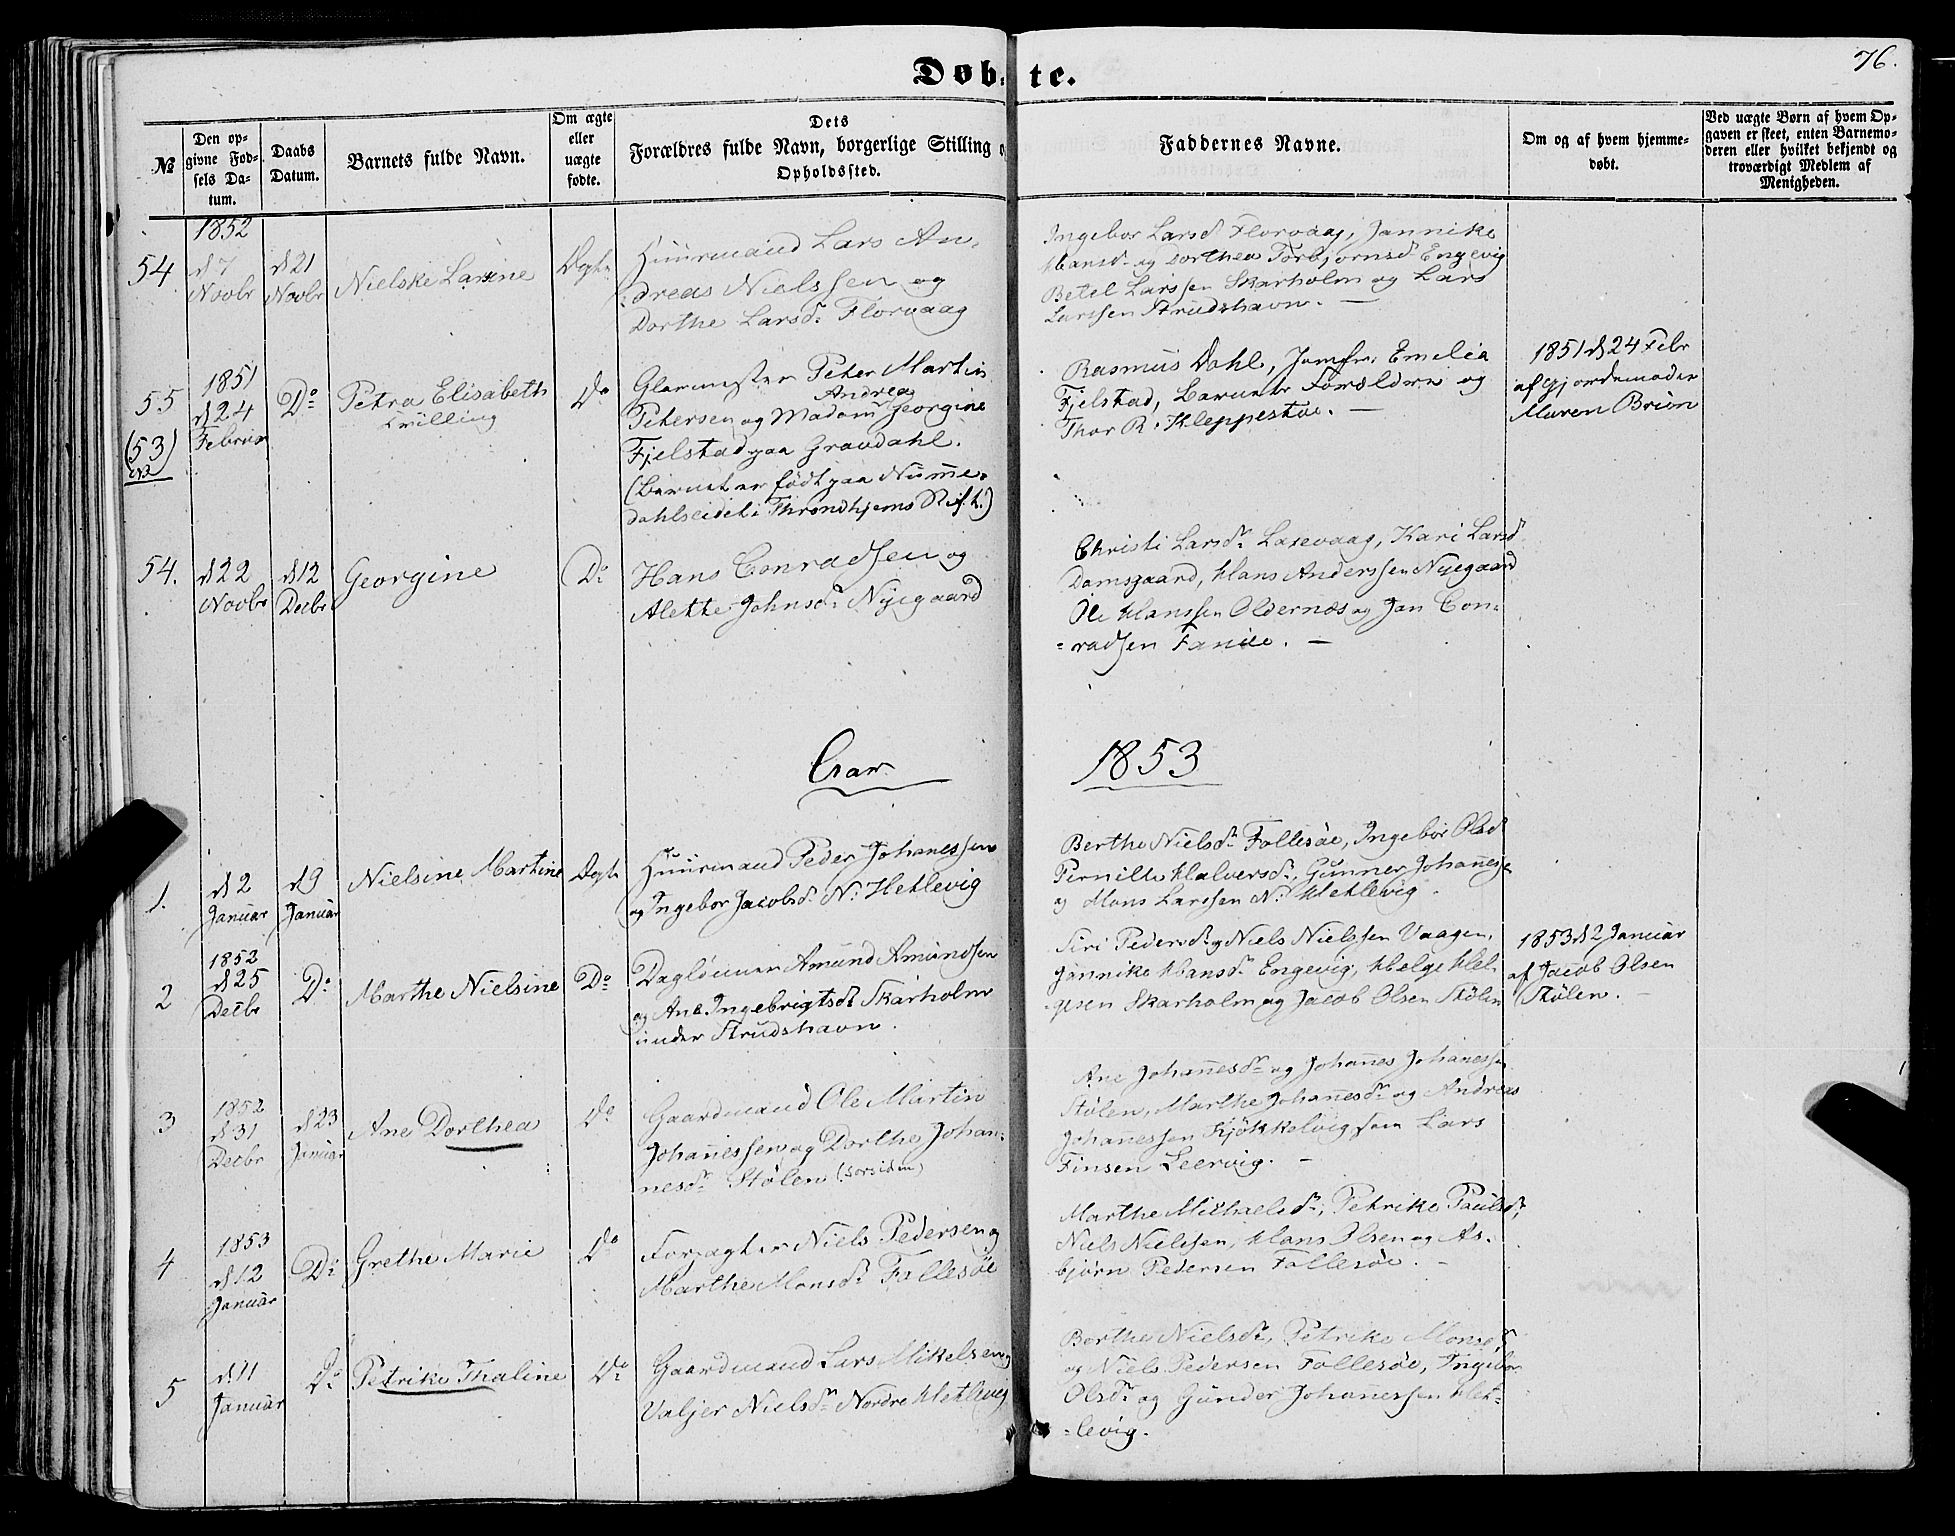 76.
Døbte.
№
Den op-
givne Fød-
sels Da-
tum.
Daabs
Datum.
Barnets fulde Navn.
Om ægte
eller
uægte
fødte.
Dets
Forældres fulde Navn, borgerlige Stilling o
Opholdssted.
Faddernes Navne.
Om og af hvem hjemme-
døbt.
Ved uægte Børn af hvem Op-
gaven er skeet, enten Barnemo-
deren eller hvilket bekjendt og
troværdigt Medlem af
Menigheden.
54.
1852
d 7
Novbr
d 21
Novbr
Nielske Larsine
Huurmand Lars An-
dreas Nielssen og
Dorthe Larsd. Florvaag
Ingebor Larsd Florvaag, Jannike
Hansd. og Dorthea Torbjørnsd Engevig
Betel Larssen Skarholm og Lars
Larssen Strudshavn. —
55
(53)
1851
d 24
Februar
Do
Petra Elisabeth
Tvilling
Do
Glarmester Peter Martin
Andrea
Petersen og Madam Georgine
Fjelstad paa Gravdahl.
(Barnet er født paa Numme-
dahlseidet i Throndhjems Stift.)
Rasmus Dahl, Jomfr. Emelia
Fjelstad, Barnets Forældre og
Thor R. Kleppestøe. —
1851 d 24 Febr
af Gjordemoder
Maren Bruun
54.
d 22
Novbr
d 12
Decbr
Georgine
Do
Hans Conradsen og
Alette Johnsd. Nygaard
Christi Larsd. Laxevaag, Kari Larsd
Damsgaard, Hans Anderssen Nyegaard
Ole Hanssen Oldernæs og Jan Con-
-radsen —
Aar
1853
1.
d 2
Januar
d 9
Januar
Nielsine Martine
Huurmand Peder Johanessen
og Ingebor Jacobsd. N. Hetlevig
Berthe Nielsd. Follesøe, Ingebor Olsd
Pernille Halversd., Gunner Johannessen
og Mons Larssen N. Hetlevig.
2
1852
d 25
Decbr
Do
Marthe Nielsine
Do
Daglønner Amund Amundsen
og Ane Ingebrigtsd. Skarholm
under Strudshavn.
Siri Pedersd. og Niels Nielssen Vaagen,
Jannike Hansd. Engevig, Helge Hel-
gesen Skarholm og Jacob Olsen Stølen
1853 d 2 Januar
af Jacob Olsen
Stølen. —
3
1852
d 31
Decbr
d 23
Januar
Ane Dorthea
Do
Gaardmand Ole Martin
Johannessen og Dorthe Johan-
nesd. Stølen
Ane Johannesd. og Johannes Johanessen
Stølen, Marthe Johannesd. og Andreas
Johannessen Kjøkkelvig, Lars
Finsen Leervig. —
4
1853
d 12
Januar
Do
Grethe Marie
Do
Forpagter Niels Pedersen og
Marthe Monsd. Follesøe
Marthe Michaelsd., Petrike Paulsd.
Niels Nielssen, Hans Olsen og As-
bjørn Pedersen Follesøe. —
5
d 11
Januar
Do
Petrike Thaline
Do
Gaardmand Lars Mikelsen og
Valjer Nielsd. Nordre Hetlevig
Berthe Nielsd., Petrike Monsd.
og Niels Pedersen Follesøe, Ingebor
Olsd. og Gunder Johannessen Het-
-levig.